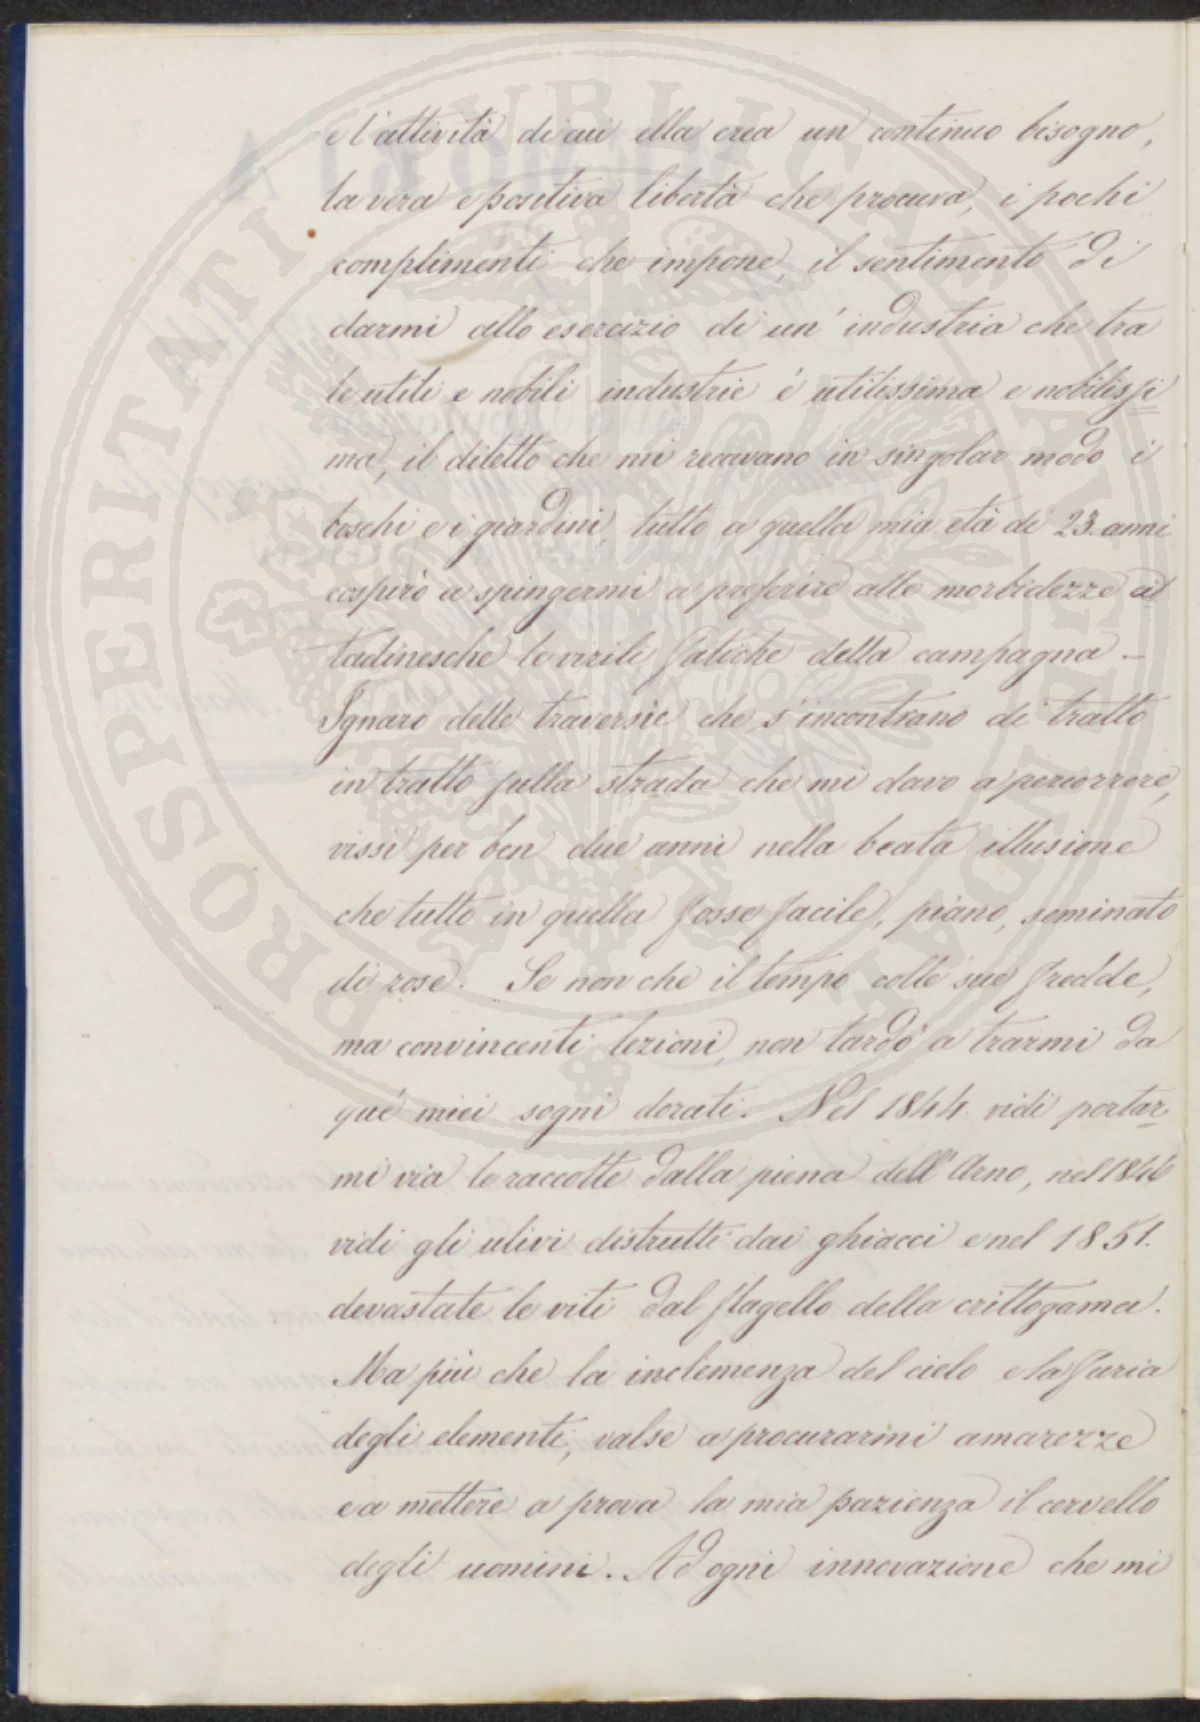 e l'attività di cui ella crea un continuo bisogno,
la vera e positiva libertà che procura, i pochi
complimenti che impone, il sentimento di
darmi allo esercizio di un' industria che tra
le utili e nobili industrie è utilissima e nobilissi
ma, il diletto che mi recavano in singolar modo i
boschi e i giardini, tutto a quella mia età di 23. anni
cospirò a spingermi a preferire alle morbidezze cit
tadinesche le virili fatiche della campagna -
Ignaro delle traversìe che s'incontrano di tratto
in tratto sulla strada che mi davo a percorrere,
vissi per ben due anni nella beata illusione
che tutto in quella fosse facile, piano, seminato
di rose. Se non che il tempo colle sue fredde,
ma convincenti lezioni, non tardò a trarmi da
que' miei sogni dorati. Nel 1844. vidi portar
mi via le raccolte dalla piena dell'Arno, nel 1846
vidi gli ulivi distrutti dai ghiacci e nel 1851.
devastate le viti dal flagello della crittogama.
Ma più che la inclemenza del cielo e la furia
degli elementi, valse a procurarmi amarezze
e a mettere a prova la mia pazienza il cervello
degli uomini. Ad ogni innovazione che mi
PROSPERITATI PUBLICAE AUGENDAE